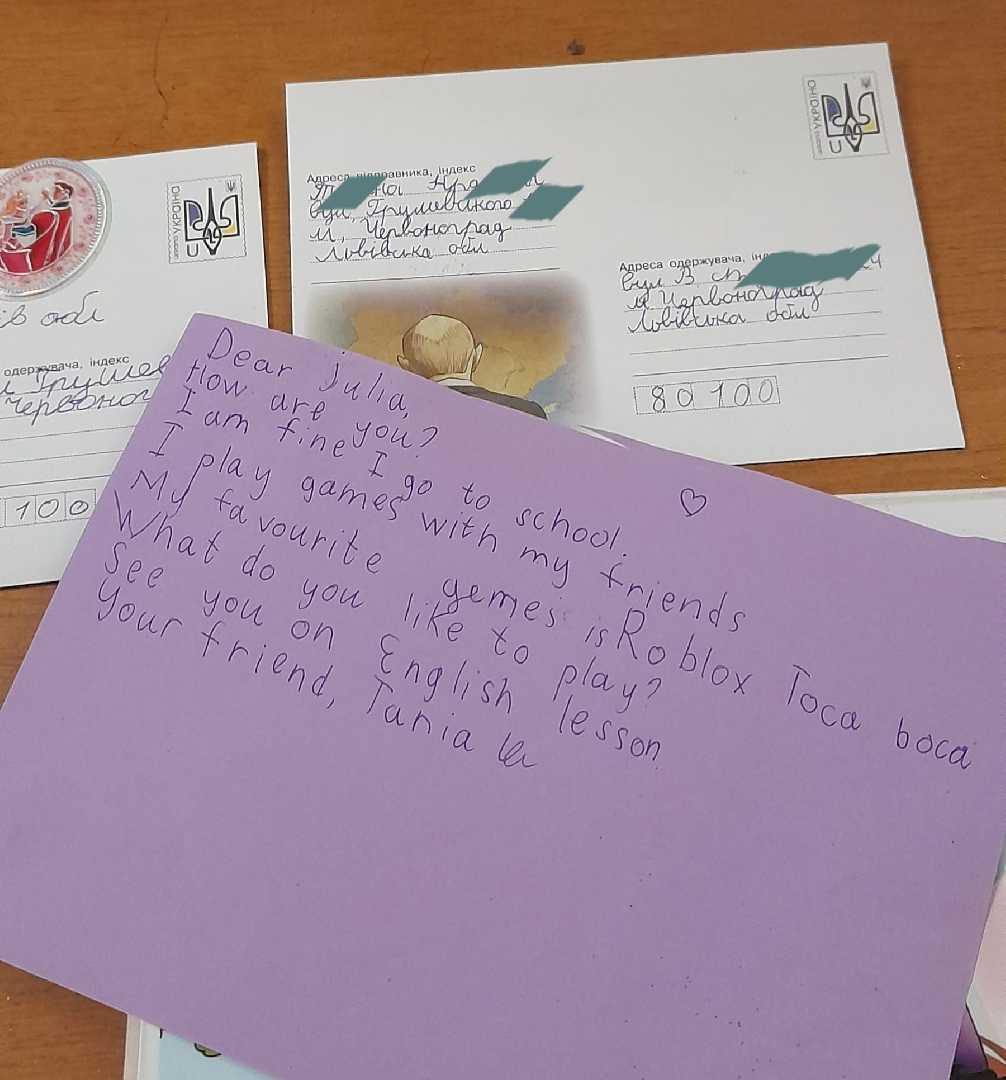 УКРАЇНА
U
ів обл
одержувача, індекс
Грушев
Червоног
100
Адреса відправника, індекс
вул. Грушевського
м. Червоноград
Львівська обл
УКРАЇНА
U
Адреса одержувача, інд
вул В
м Червоноград
Львівська обл
80100
Dear Julia,
How are you?
I am fine I go to school.
I play games with my friends
My favourite gemes is Roblox Toca boca
What do you like to play?
See you on English lesson
Your friend, Tania